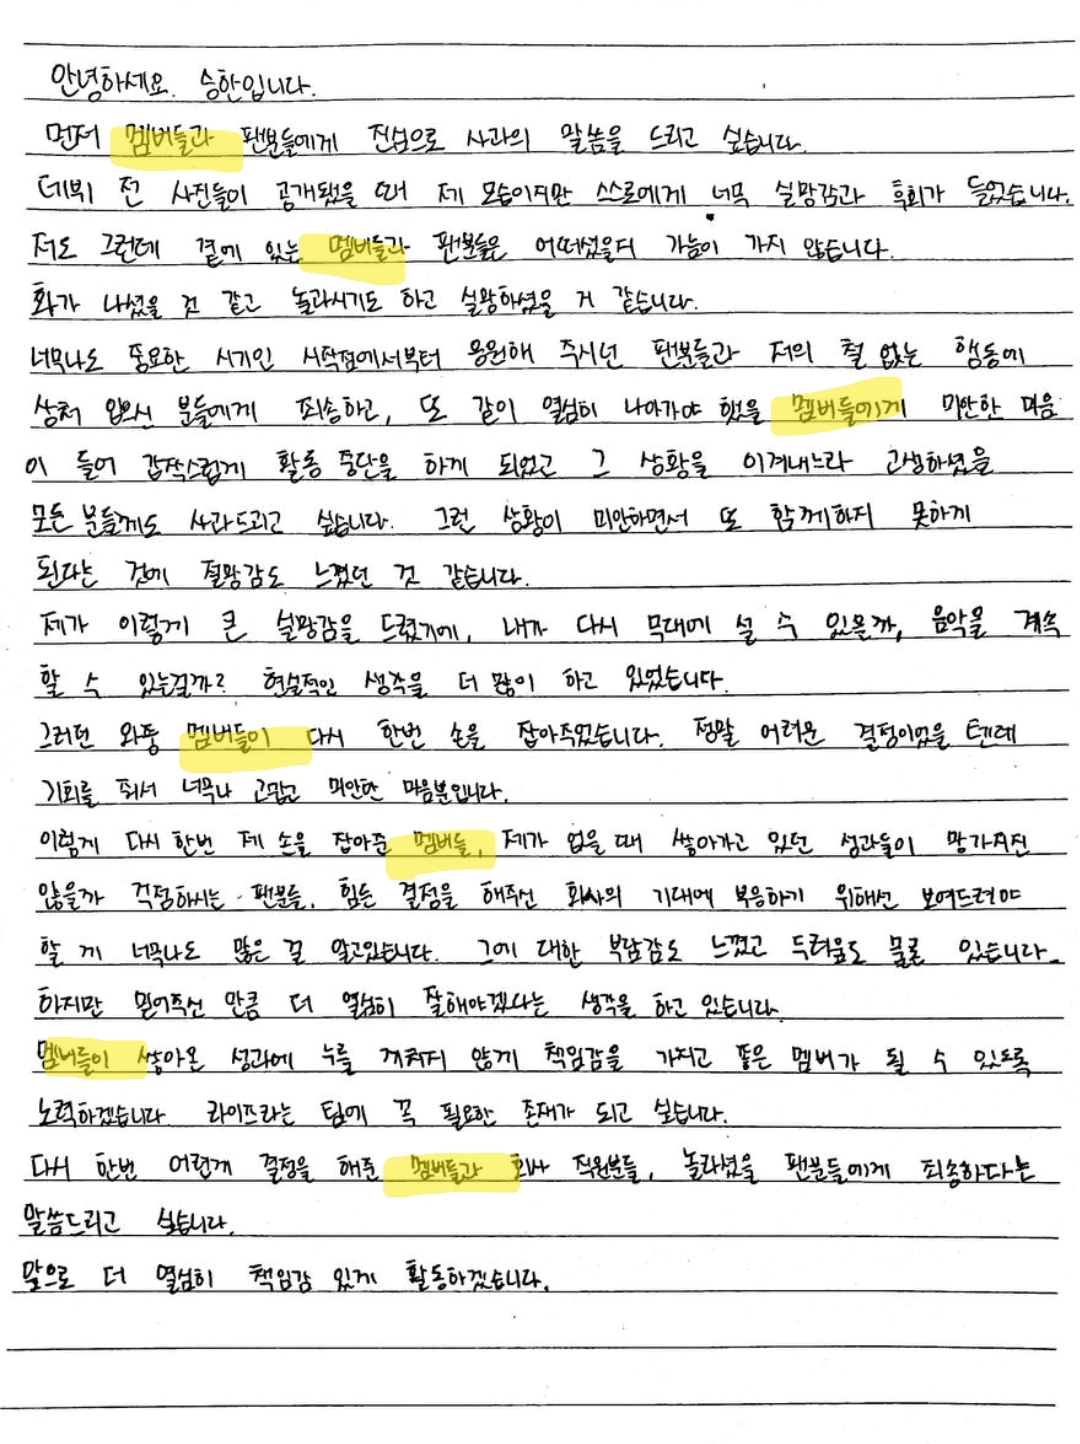 안녕하세요. 승한입니다.
먼저 멤버들과 팬분들에게 진심으로 사과의 말씀을 드리고 싶습니다.
데뷔 전 사진들이 공개됐을 때 제 모습이지만 스스로에게 너무 실망감과 후회가 들었습니다.
저도 그런데 곁에 있는 멤버들과 팬분들은 어떠셨을지 가늠이 가지 않습니다.
화가 나셨을 것 같고 놀라시기도 하고 실망하셨을 거 같습니다.
너무나도 중요한 시기인 시작점에서부터 응원해 주시던 팬분들과 저의 철 없는 행동에
상처 입으신 분들에게 죄송하고, 또 같이 열심히 나아가야 했을 멤버들에게 미안한 마음
이 들어 갑작스럽게 활동 중단을 하게 되었고 그 상황을 이겨내느라 고생하셨을
모든 분들께도 사과드리고 싶습니다. 그런 상황이 미안하면서 또 함께하지 못하게
된다는 것에 절망감도 느꼈던 것 같습니다.
제가 이렇게 큰 실망감을 드렸기에, 내가 다시 무대에 설 수 있을까, 음악을 계속
할 수 있는걸까? 현실적인 생각을 더 많이 하고 있었습니다.
그러던 와중 멤버들이 다시 한번 손을 잡아주었습니다. 정말 어려운 결정이었을 텐데
기회를 줘서 너무나 고맙고 미안한 마음뿐입니다.
이렇게 다시 한번 제 손을 잡아준 멤버들, 제가 없을 때 쌓아가고 있던 성과들이 망가지진
않을까 걱정하시는 팬분들, 힘든 결정을 해주신 회사의 기대에 부응하기 위해선 보여드려야
할 게 너무나도 많은 걸 알고있습니다. 그에 대한 부담감도 느꼈고 두려움도 물론 있습니다.
하지만 믿어주신 만큼 더 열심히 잘해야겠다는 생각을 하고 있습니다.
멤버들이 쌓아온 성과에 누를 끼치지 않게 책임감을 가지고 좋은 멤버가 될 수 있도록
노력하겠습니다. 라이즈라는 팀에 꼭 필요한 존재가 되고 싶습니다.
다시 한번 어렵게 결정을 해준 멤버들과 회사 직원분들, 놀라셨을 팬분들에게 죄송하다는
말씀드리고 싶습니다.
앞으로 더 열심히 책임감 있게 활동하겠습니다.